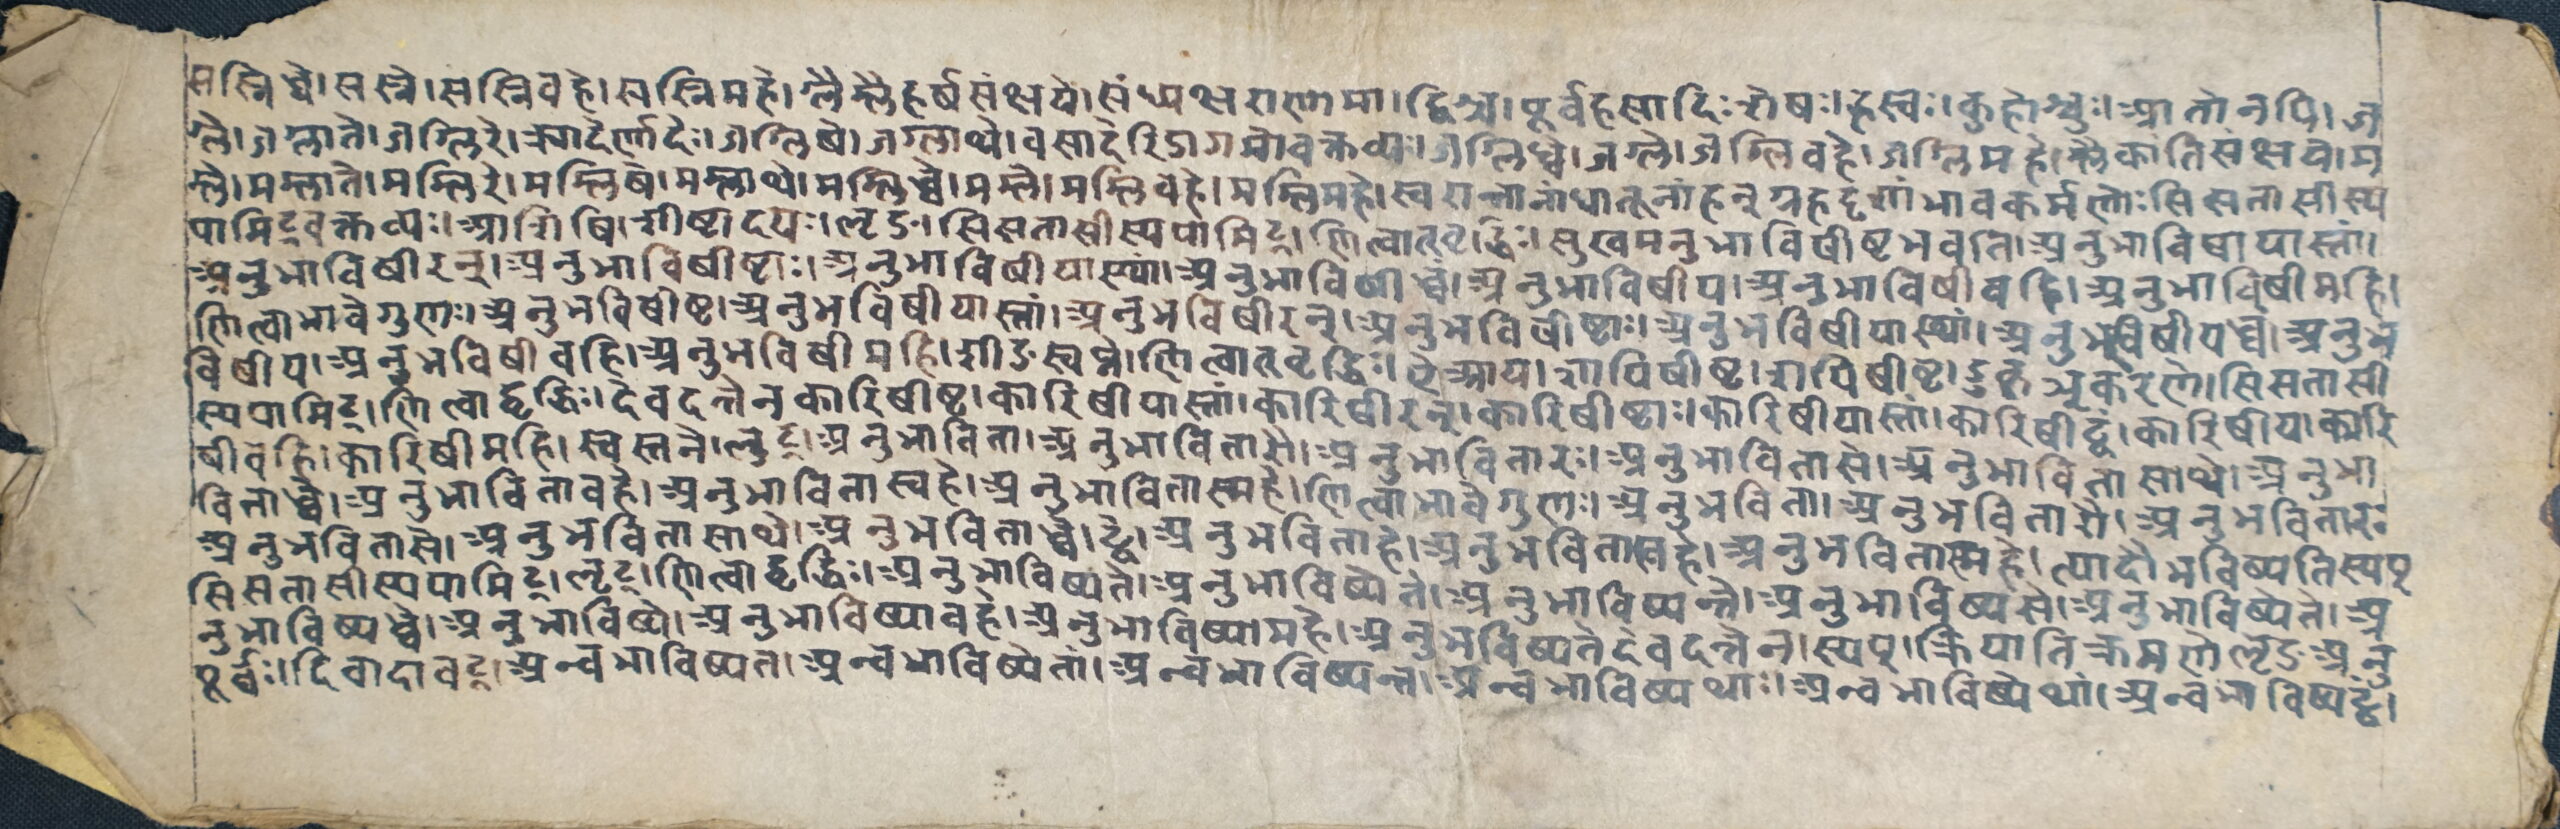 सस्निध्वे। सस्ने। सस्निवहे। सस्निमहे। ग्लै म्लै हर्षसंक्षये। संध्यक्षराणामा। द्विश्च। पूर्वहसादिः शेषः। ह्रस्वः। कुहोश्चुः। आतोनपि। ज
ग्ले। जग्लाते। जग्लिरे। क्र्यादेर्णादेः। जग्लिषे। जग्लाथे। वसादेरिडागमोवक्तव्यः। जग्लिध्वे। जग्ले। जग्लिवहे। जग्लिमहे। म्लै कांतिसंक्षये। म
म्ले। मम्लाते। मम्लिरे। मम्लिषे। मम्लाथे। मम्लिध्वे। मम्ले। मम्लिवहे। मम्लिमहे। स्वरान्तानांधातूनां हन्ग्रहदृशां भावकर्मणोः सिसतासीस्य
पामिट्वक्तव्यः। आशिषि। शीष्टादयः। लृङ। सिसतासीस्यपामिट्। णित्वात्वृद्धिः। सुखमनुभाविषीष्ट भवति। अनुभाविषीयास्तां।
अनुभाविषीरन्। अनुभाविषीष्टाः। अनुभाविषीयास्थां। अनुभाविषीध्वं। अनुभाविषीय। अनुभाविषीवहि। अनुभाविषीमहि।
णित्वाभावे गुणः। अनुभविषीष्ट। अनुभविषीयास्तां। अनुभविषीरन्। अनुभविषीष्टाः। अनुभविषीयास्थां। अनुभविषीयध्वं। अनुभ
विषीय। अनुभविषीवहि। अनुभविषीमहि। शीङ स्वप्ने। णित्वात्वृद्धिः। ऐ आय। शायिषीष्ट। शयिषीष्ट। डुकृञ् करणे। सिसतासी
स्यपामिट्। णित्वाद्वृद्धिः। देवदत्तेन कारिषीष्ट। कारिषीयास्तां। कारिषीरन्। कारिषीष्टाः। कारिषीयास्तां। कारिषीढ्वं। कारिषीय। कारि
षीवहि। कारिषीमहि। स्वस्तने। लुट्। अनुभाविता। अनुभावितारौ। अनुभावितारः। अनुभावितासे। अनुभावितासाथे। अनुभा
विताध्वे। अनुभाविताहे। अनुभावितास्वहे। अनुभावितास्महे। णित्वाभावे गुणः। अनुभविता। अनुभवितारौ। अनुभवितारः
अनुभवितासे। अनुभवितासाथे। अनुभविताध्वे। ढ्वे। अनुभविताहे। अनुभवितास्वहे। अनुभवितास्महे। त्यादौ भविष्यति स्यप्
सिसतासीस्यपामिट्। लृट्। णित्वाद्वृद्धिः। अनुभाविष्यते। अनुभाविष्येते। अनुभाविष्यन्ते। अनुभाविष्यसे। अनुभाविष्येते। अ
नुभाविष्यध्वे। अनुभाविष्ये। अनुभाविष्यावहे। अनुभाविष्यामहे। अनुभविष्यते देवदत्तेन। स्यप्। क्रियातिक्रमणे लृङ अनु
पूर्वः। दिवादावट्। अन्वभाविष्यत। अन्वभाविष्येतां। अन्वभाविष्यन्त। अन्वभाविष्यथाः। अन्वभाविष्येथां। अन्वभाविष्यढ्वं।